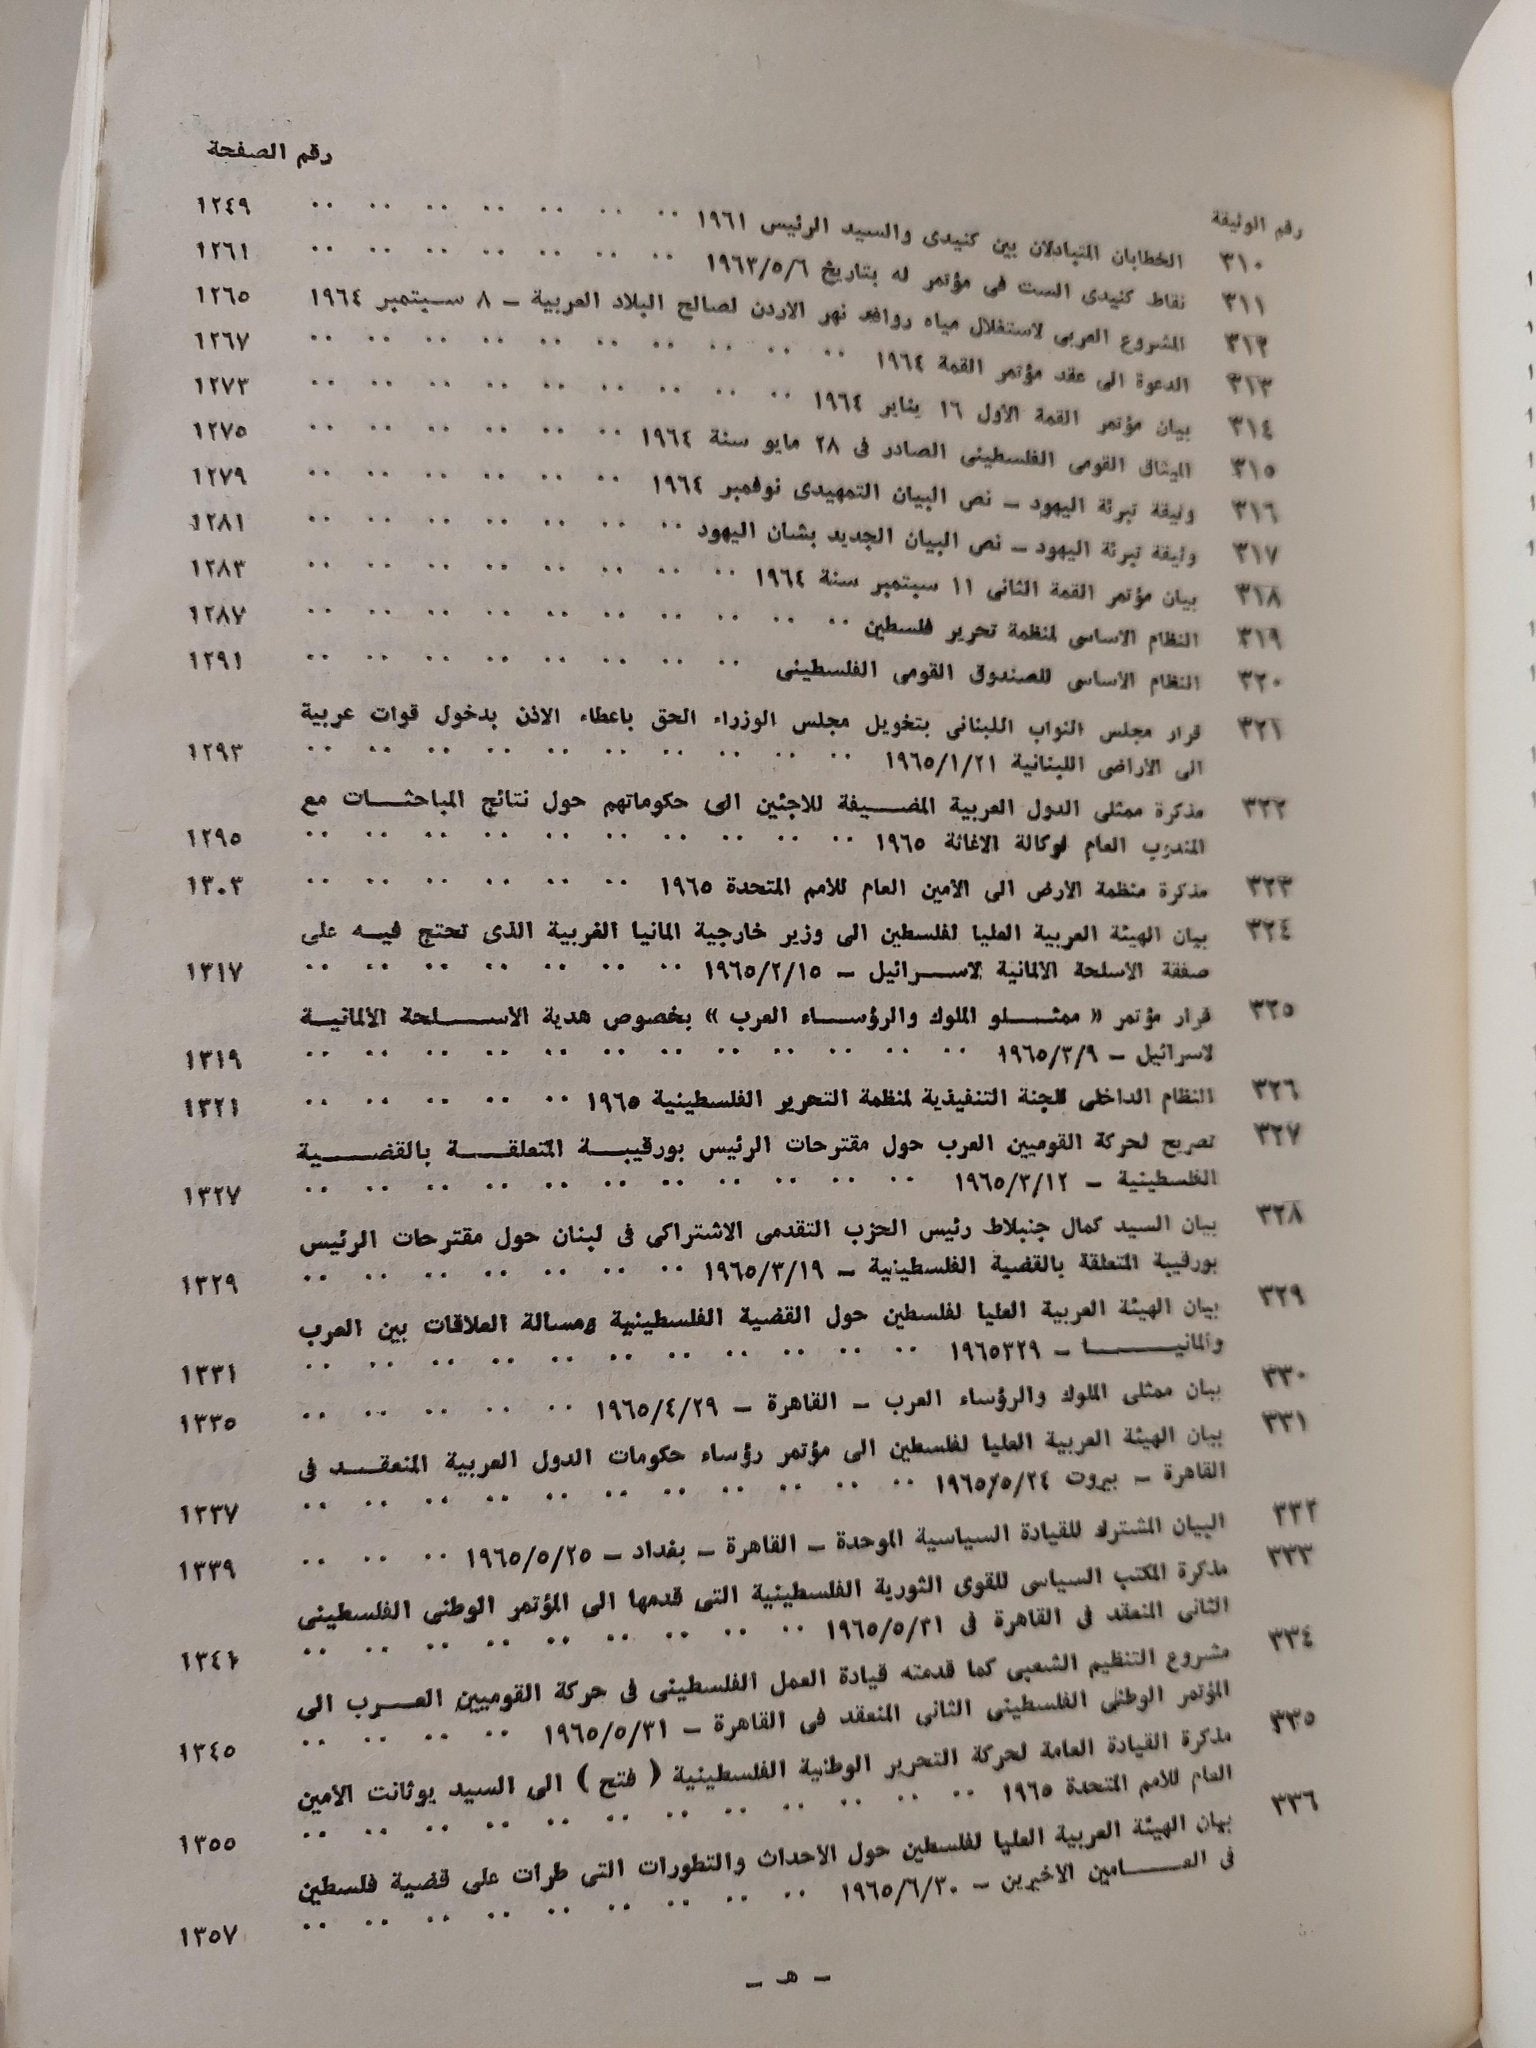 رقم الوثيقة رقم الصفحة
٣١٠ الخطابان المتبادلان بين كنيدى والسيد الرئيس ١٩٦١ ١٢٤٩
٣١١ نقاط كنيدى الست فى مؤتمر له بتاريخ ١٩٦٣/٥/٦ ١٢٦١
٣١٢ المشروع العربى لاستغلال مياه روافد نهر الاردن لصالح البلاد العربية – ٨ سبتمبر ١٩٦٤ ١٢٦٥
٣١٣ الدعوة الى عقد مؤتمر القمة ١٩٦٤ ١٢٦٧
٣١٤ بيان مؤتمر القمة الأول ١٦ يناير ١٩٦٤ ١٢٧٣
٣١٥ الميثاق القومى الفلسطينى الصادر فى ٢٨ مايو سنة ١٩٦٤ ١٢٧٥
٣١٦ وثيقة تبرئة اليهود – نص البيان التمهيدى نوفمبر ١٩٦٤ ١٢٧٩
٣١٧ وثيقة تبرئة اليهود – نص البيان الجديد بشان اليهود ١٢٨١
٣١٨ بيان مؤتمر القمة الثانى ١١ سبتمبر سنة ١٩٦٤ ١٢٨٣
٣١٩ النظام الاساسى لمنظمة تحرير فلسطين ١٢٨٧
٣٢٠ النظام الاساسى للصندوق القومى الفلسطينى ١٢٩١
٣٢١ قرار مجلس النواب اللبنانى بتخويل مجلس الوزراء الحق باعطاء الاذن بدخول قوات عربية
الى الاراضى اللبنانية ١٩٦٥/١/٢١ ١٢٩٣
٣٢٢ مذكرة ممثلى الدول العربية المضيفة للاجئين الى حكوماتهم حول نتائج المباحثات مع
المندوب العام لوكالة الاغاثة ١٩٦٥ ١٢٩٥
٣٢٣ مذكرة منظمة الارض الى الأمين العام للأمم المتحدة ١٩٦٥ ١٣٠٣
٣٢٤ بيان الهيئة العربية العليا لفلسطين الى وزير خارجية المانيا الغربية الذى تحتج فيه على
صفقة الاسلحة الالمانية لاسرائيل – ١٩٦٥/٢/١٥ ١٣١٧
٣٢٥ قرار مؤتمر « ممثلو الملوك والرؤساء العرب » بخصوص هدية الاسلحة الالمانية
لاسرائيل – ١٩٦٥/٣/٩ ١٣١٩
٣٢٦ النظام الداخلى للجنة التنفيذية لمنظمة التحرير الفلسطينية ١٩٦٥ ١٣٢١
٣٢٧ تصريح لحركة القوميين العرب حول مقترحات الرئيس بورقيبة المتعلقة بالقضية
الفلسطينية – ١٩٦٥/٣/١٢ ١٣٢٧
٣٢٨ بيان السيد كمال جنبلاط رئيس الحزب التقدمى الاشتراكى فى لبنان حول مقترحات الرئيس
بورقيبة المتعلقة بالقضية الفلسطينية – ١٩٦٥/٣/١٩ ١٣٢٩
٣٢٩ بيان الهيئة العربية العليا لفلسطين حول القضية الفلسطينية ومسالة العلاقات بين العرب
والمانيا – ١٩٦٥٣٢٩ ١٣٣١
٣٣٠ بيان ممثلى الملوك والرؤساء العرب – القاهرة – ١٩٦٥/٤/٢٩ ١٣٣٥
٣٣١ بيان الهيئة العربية العليا لفلسطين الى مؤتمر رؤساء حكومات الدول العربية المنعقد فى
القاهرة – بيروت ١٩٦٥/٥/٢٤ ١٣٣٧
٣٣٢ البيان المشترك للقيادة السياسية الموحدة – القاهرة – بغداد – ١٩٦٥/٥/٢٥ ١٣٣٩
٣٣٣ مذكرة المكتب السياسى للقوى الثورية الفلسطينية التى قدمها الى المؤتمر الوطنى الفلسطينى
الثانى المنعقد فى القاهرة فى ١٩٦٥/٥/٣١ ١٣٤١
٣٣٤ مشروع التنظيم الشعبى كما قدمته قيادة العمل الفلسطينى فى حركة القوميين العرب الى
المؤتمر الوطنى الفلسطينى الثانى المنعقد فى القاهرة – ١٩٦٥/٥/٣١ ١٣٤٥
٣٣٥ مذكرة القيادة العامة لحركة التحرير الوطنية الفلسطينية ( فتح ) الى السيد يوثانت الأمين
العام للأمم المتحدة ١٩٦٥ ١٣٥٥
٣٣٦ بيان الهيئة العربية العليا لفلسطين حول الاحداث والتطورات التى طرات على قضية فلسطين
فى العامين الأخيرين – ١٩٦٥/٦/٣٠ ١٣٥٧
– هـ –